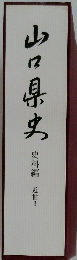 山口県史
史料編
近世1